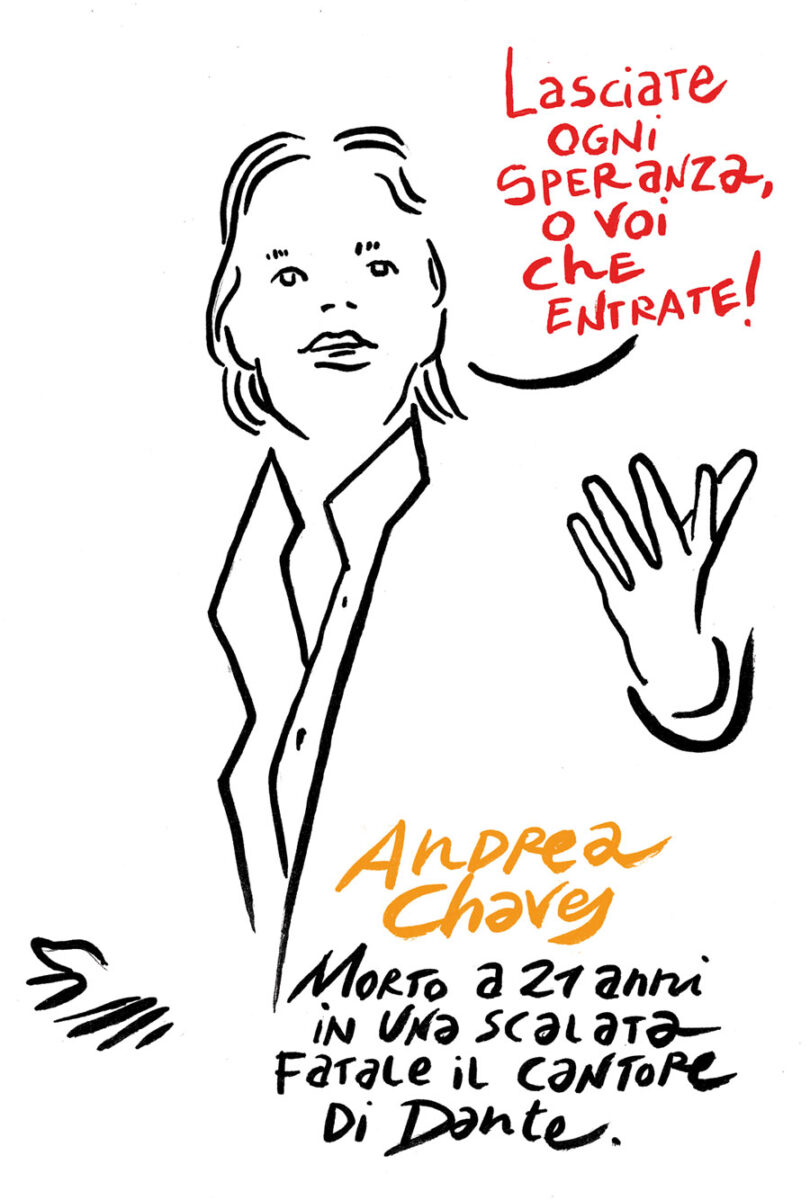 Lasciate
OGNI
SPERANZA,
O VOI
ChE
ENTRATE!
Andrea
Chaves
MORTO a 21 anni
in UNa SCALATA
FATALE il CANTORE
Di Dante.